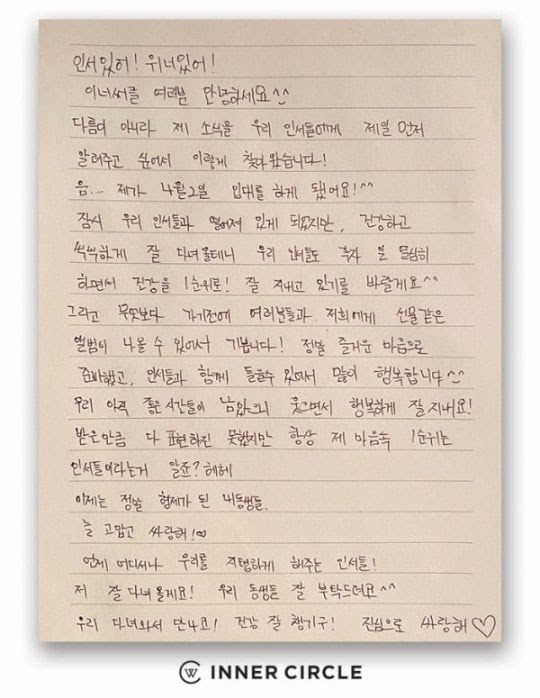 인서있어! 위너있어!
이너써클 여러분 안녕하세요^^
다름이 아니라 제 소식을 우리 인서들에게 제일 먼저
알려주고 싶어서 이렇게 찾아왔습니다!
음... 제가 4월2일 입대를 하게 됐어요!^^
잠시 우리 인서들과 떨어져 있게 되었지만, 건강하고
씩씩하게 잘 다녀올테니 우리 인서들도 각자 일 열심히
하면서 건강을 1순위로! 잘 지내고 있기를 바랄게요^^
그리고 무엇보다 가기전에 여러분들과 저희에게 선물같은
앨범이 나올 수 있어서 기쁩니다! 정말 즐거운 마음으로
준비했고, 인서들과 함께 들을수 있어서 많이 행복합니다^^
우리 아직 좋은 시간들이 남았으니 웃으면서 행복하게 잘 지내요!
받은만큼 다 표현하진 못했지만 항상 제 마음속 1순위는
인서들이라는거 알죠? 헤헤
이제는 정말 형제가 된 내동생들.
늘 고맙고 싸랑해!♡
언제 어디서나 우리를 지탱하게 해주는 인서들!
저 잘 다녀올게요! 우리 동생들 잘 부탁드려요^^
우리 다녀와서 만나고! 건강 잘 챙기구! 진심으로 싸랑해♡
INNER CIRCLE